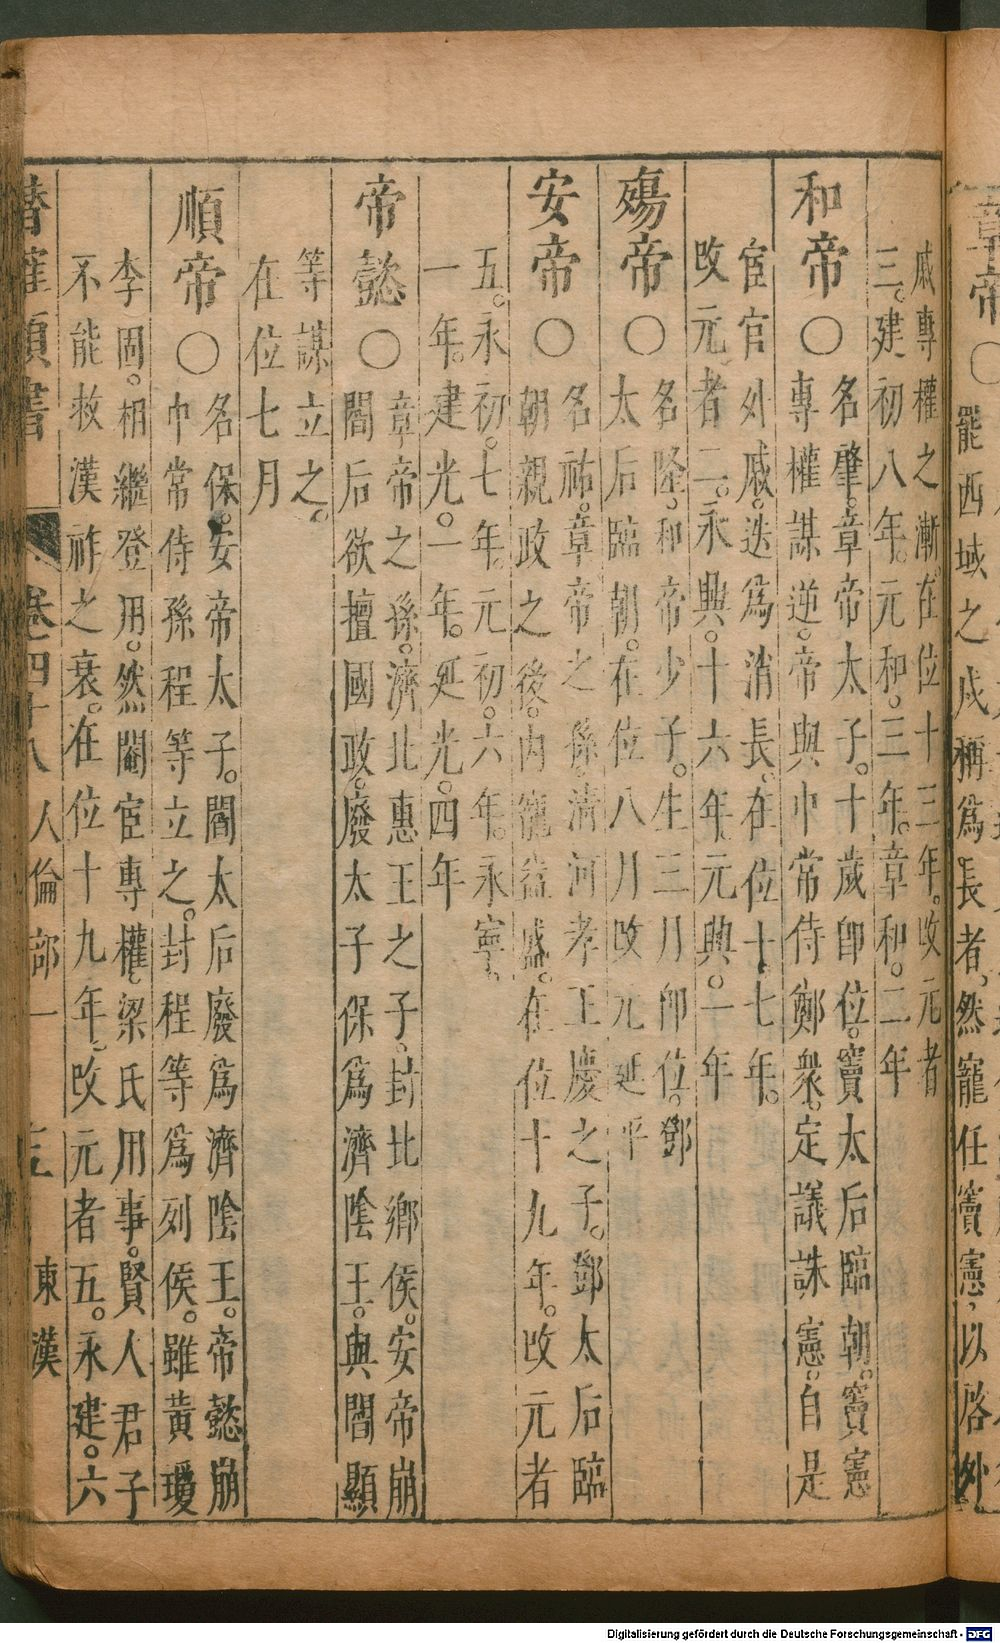 章帝〇
罷西域之戍稱爲長者然寵任竇憲以啓外
戚專權之漸在位十三年改元者
三建初八年元和三年章和二年
和帝〇名肇章帝太子十歲卽位竇太后臨朝竇憲
專權謀逆帝與中常侍鄭衆定議誅憲自是
宦官外戚迭爲消長在位十七年
改元者二永興十六年元興一年
殤帝〇名隆和帝少子生三月卽位鄧
太后臨朝在位八月改元延平
安帝〇名祐章帝之孫清河孝王慶之子鄧太后臨
朝親政之後內寵益盛在位十九年改元者
五永初七年元初六年永寧
一年建光一年延光四年
帝懿〇章帝之孫濟北惠王之子封北鄉侯安帝崩
閻后欲擅國政廢太子保爲濟陰王與閻顯
等謀立之
在位七月
順帝〇名保安帝太子閻太后廢爲濟陰王帝懿崩
中常侍孫程等立之封程等爲列侯雖黃瓊
李固相繼登用然閹宦專權梁氏用事賢人君子
不能救漢祚之衰在位十九年改元者五永建六
卷四十八 人倫部一 東漢